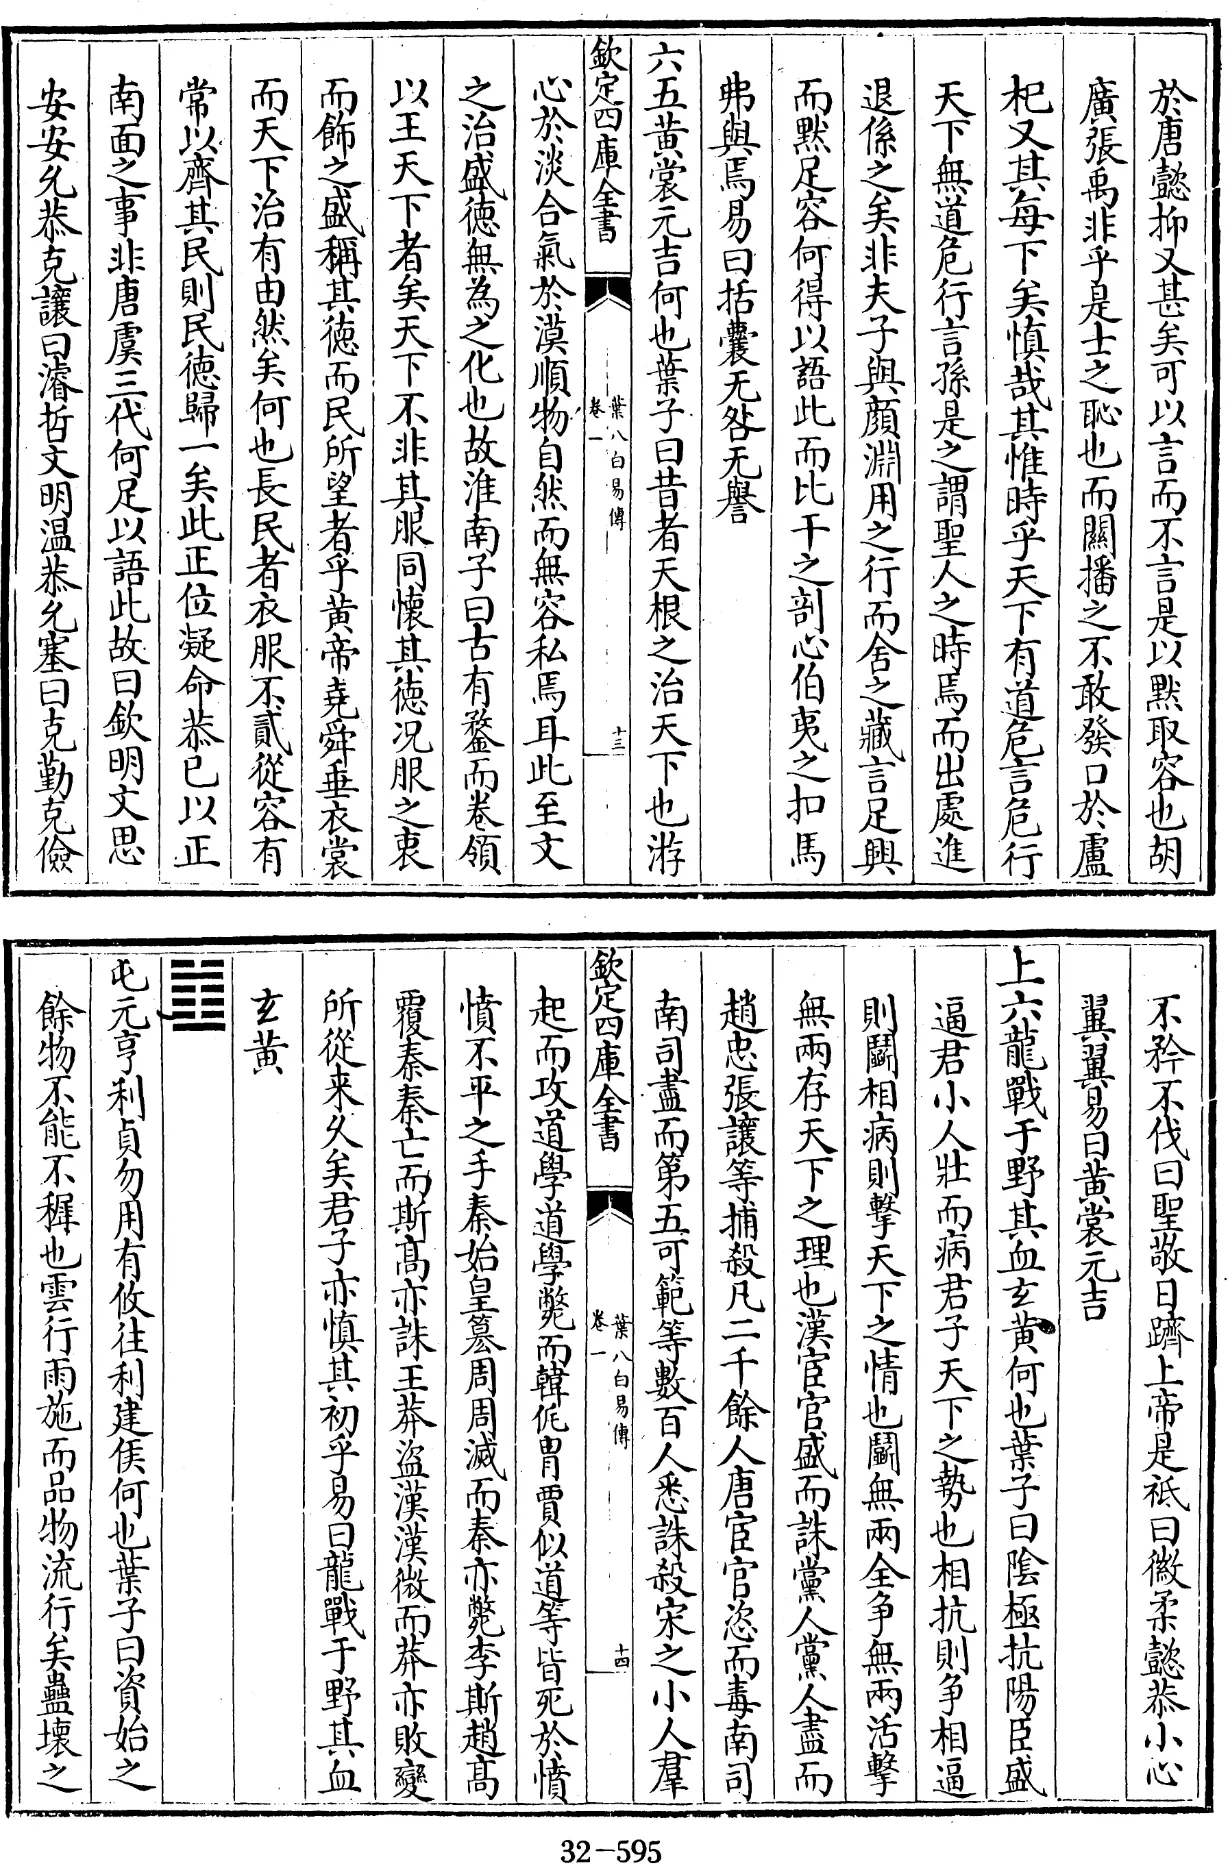 於唐懿抑又甚矣可以言而不言是以默取容也胡
廣張禹非乎是士之恥也而關播之不敢發口於盧
杞又其每下矣慎哉其惟時乎天下有道危言危行
天下無道危行言孫是之謂聖人之時焉而出處進
退係之矣非夫子與顔淵用之行而舍之藏言足興
而默足容何得以語此而比干之剖心伯夷之扣馬
弗與焉易曰括囊无咎无譽
六五黄裳元吉何也葉子曰昔者天根之治天下也游
欽定四庫全書
葉八白易傳
卷一
十三
心於淡合氣於漠順物自然而無容私焉耳此至文
之治盛徳無為之化也故淮南子曰古有鍪而卷領
以王天下者矣天下不非其服同懷其徳况服之衷
而飾之盛稱其徳而民所望者乎黄帝堯舜垂衣裳
而天下治有由然矣何也長民者衣服不貳從容有
常以齊其民則民徳歸一矣此正位凝命恭已以正
南面之事非唐虞三代何足以語此故曰欽明文思
安安允恭克讓曰濬哲文明温恭允塞曰克勤克儉
不矜不伐曰聖敬日躋上帝是祗曰徽柔懿恭小心
翼翼易曰黄裳元吉
上六龍戰于野其血玄黄何也葉子曰隂極抗陽臣盛
逼君小人壯而病君子天下之勢也相抗則争相逼
則鬬相病則擊天下之情也鬬無兩全争無兩活擊
無兩存天下之理也漢宦官盛而誅黨人黨人盡而
趙忠張讓等捕殺凡二千餘人唐宦官恣而毒南司
南司盡而第五可範等數百人悉誅殺宋之小人羣
欽定四庫全書
葉八白易傳
卷一
十四
起而攻道學道學斃而韓侂胄賈似道等皆死於憤
憤不平之手秦始皇簒周周滅而秦亦斃李斯趙髙
覆秦秦亡而斯髙亦誅王莽盜漢漢微而莽亦敗變
所從来久矣君子亦慎其初乎易曰龍戰于野其血
玄黄
屯元亨利貞勿用有攸往利建侯何也葉子曰資始之
餘物不能不穉也雲行雨施而品物流行矣蠱壞之
32-595